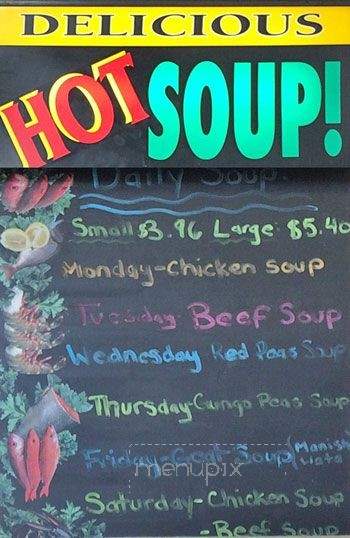 DELICIOUS
HOT SOUP!
Daily Soup:
Small $3.96 Large: $5.40
Monday-Chicken soup
Tuesday-Beef Soup
Wednesday Red Peas Soup
Thursday-Gungo Peas Soup
Friday-Goat Soup (Manish
Wata)
menupix
Saturday-Chicken Soup
-Beef Soup